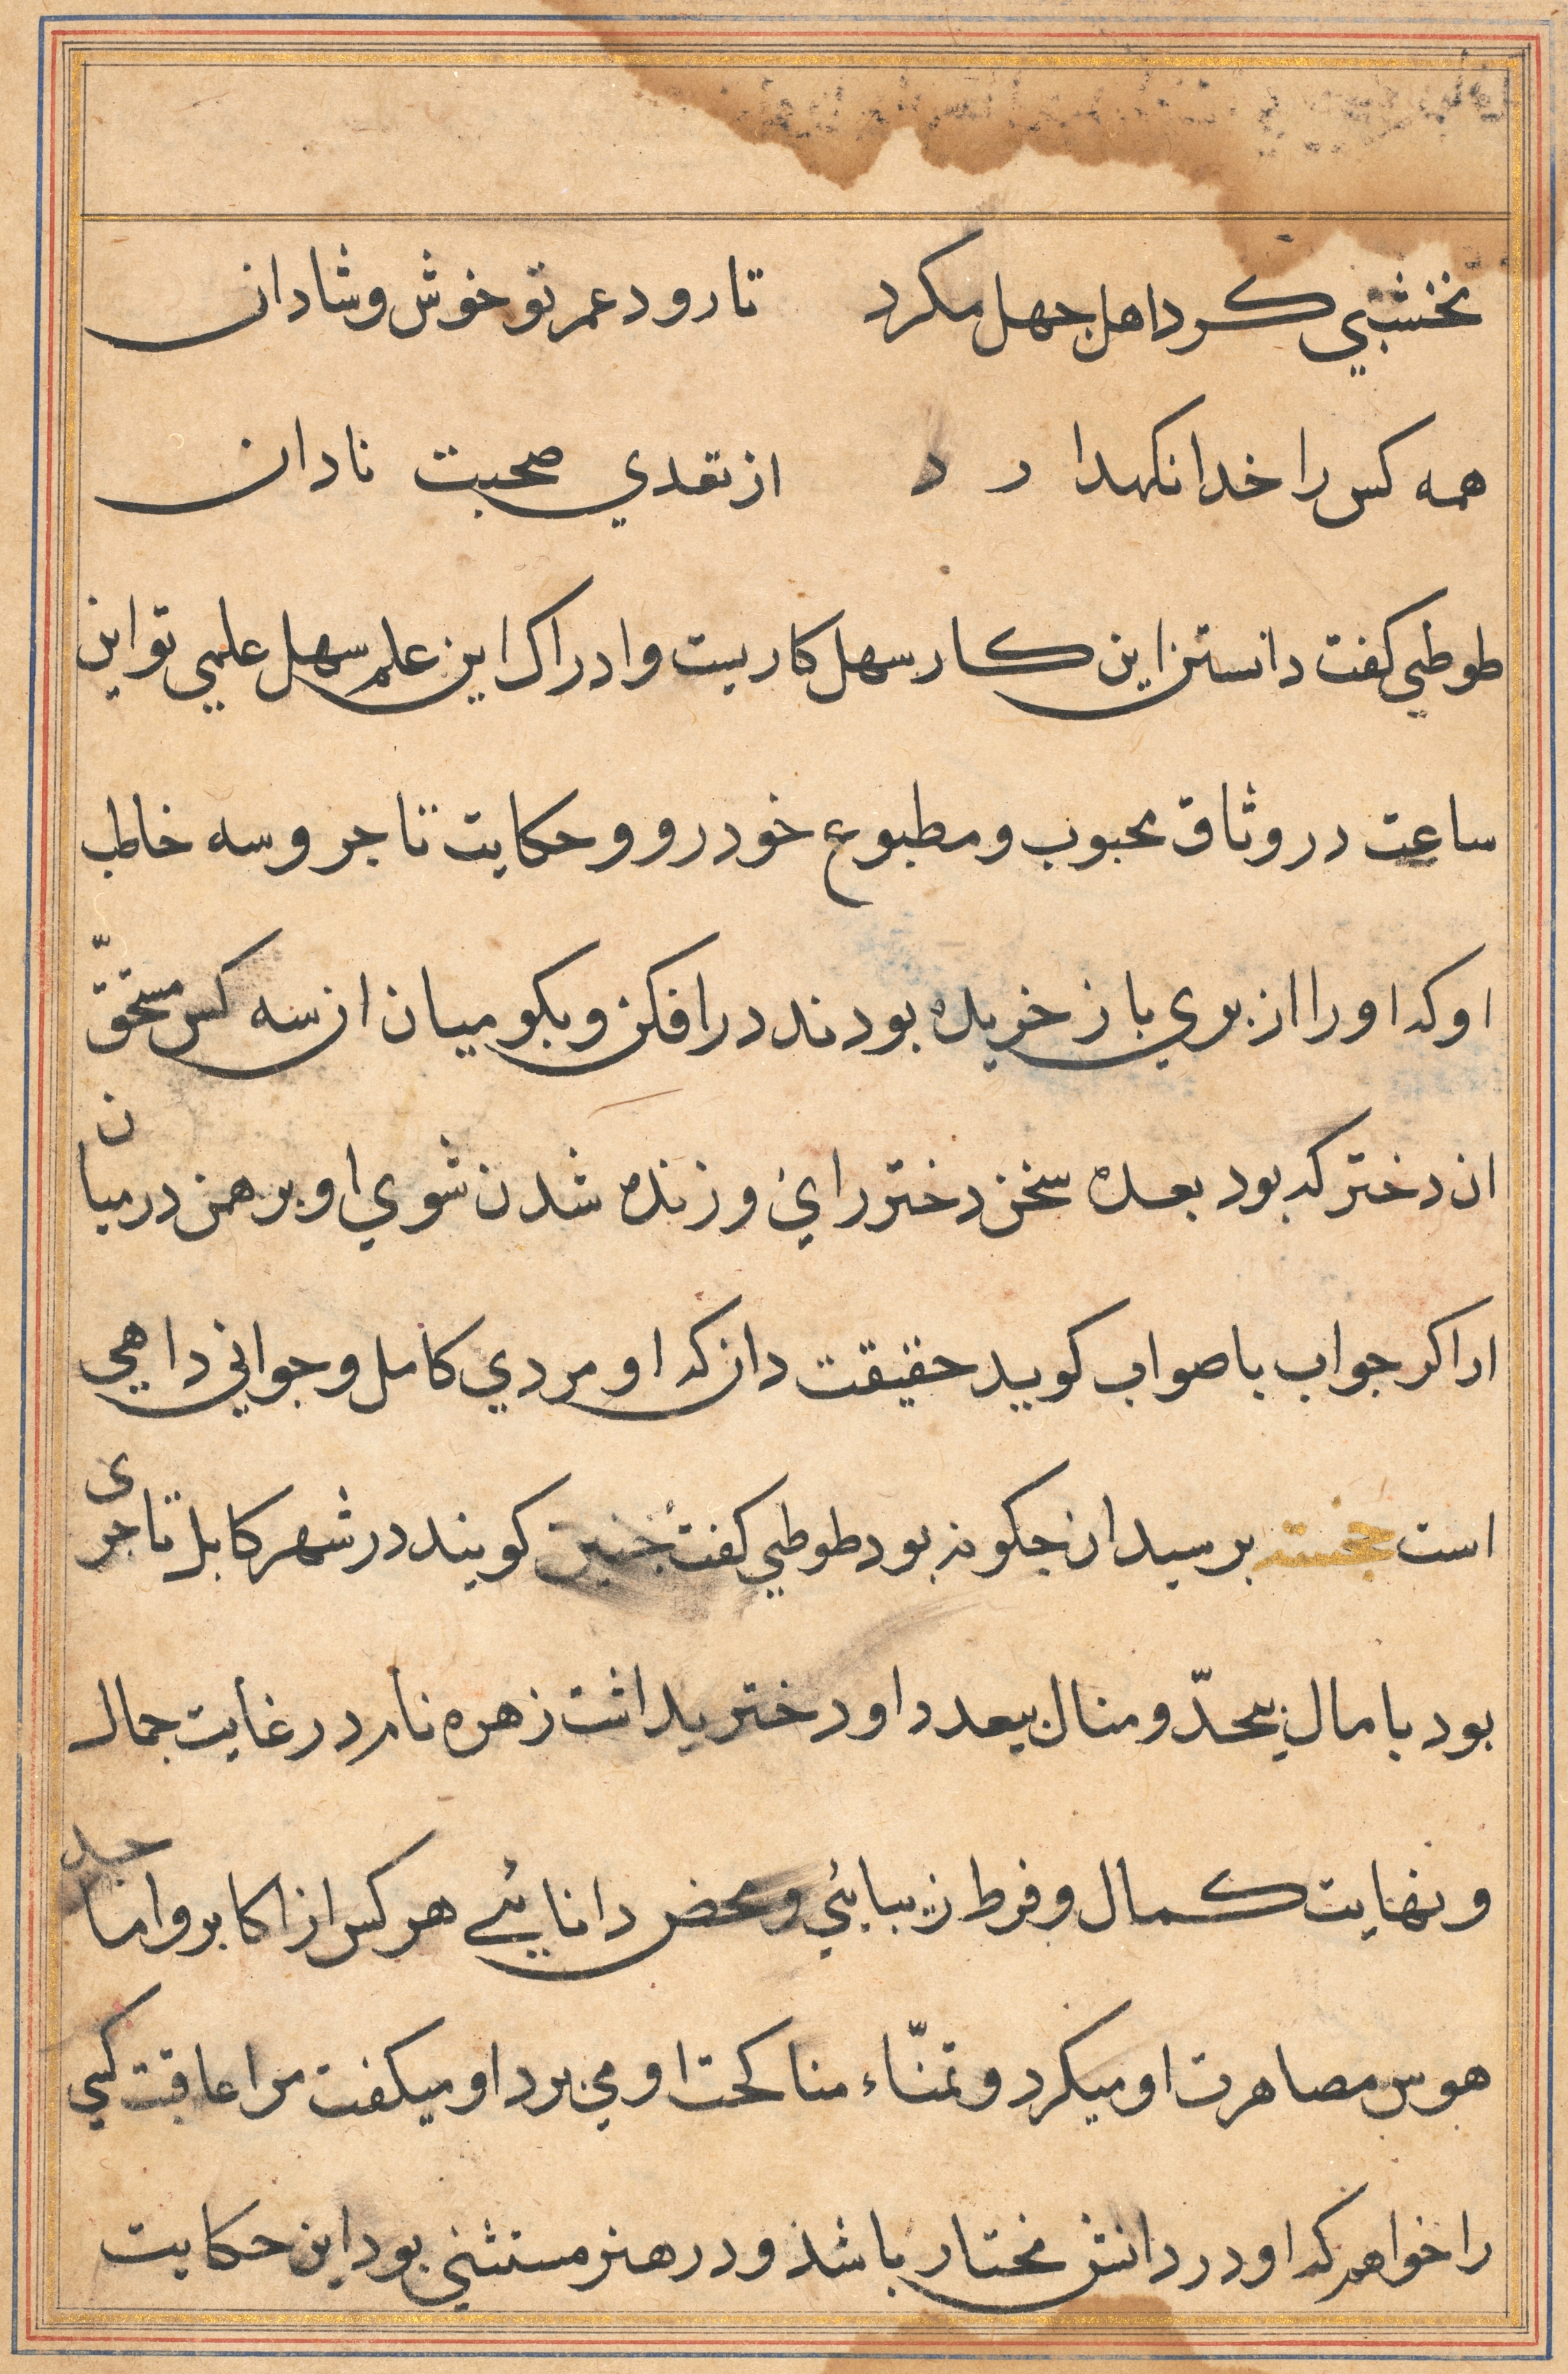 نخشبي كرد اهل جهل مكرد تا رود عمر تو خوش وشادان
همه كس را خدا نكهدا ر د از تعدي صحبت نادان
طوطي كفت دانستن اين كار سهل كاريست وادراك اين علم سهل علمي تو اين
ساعت در وثاق محبوب ومطبوع خود رو وحكايت تاجر وسه خاطب
او كه او را از پري باز خريده بودند در افكن وبكو ميان ان سه كس مستحقّ
ان دختر كه بود بعده سخن دختر راي وزنده شدن شوي او برهمن درميان
ار اكر جواب باصواب كويد حقيقت دان كه او مردي كامل وجواني داهي
است خجسته برسيد ان جكونه بود طوطي كفت جنين كويند در شهر كابل تاجرى
بود با مال بيحدّ ومنال بيعدد او دختر يداشت زهره نام در غايت جمال
ونهايت كمال وفرط زيبائي ومحض دانائي هر كس از اكابر واماجد
هوس مصاهرت او ميكرد وتمنّاء مناكحت او مي برد او ميكفت مرا عاقبت كسي
را خواهم كه او در دانش مختار باشد ودر هنر مستثني بود اين حكايت